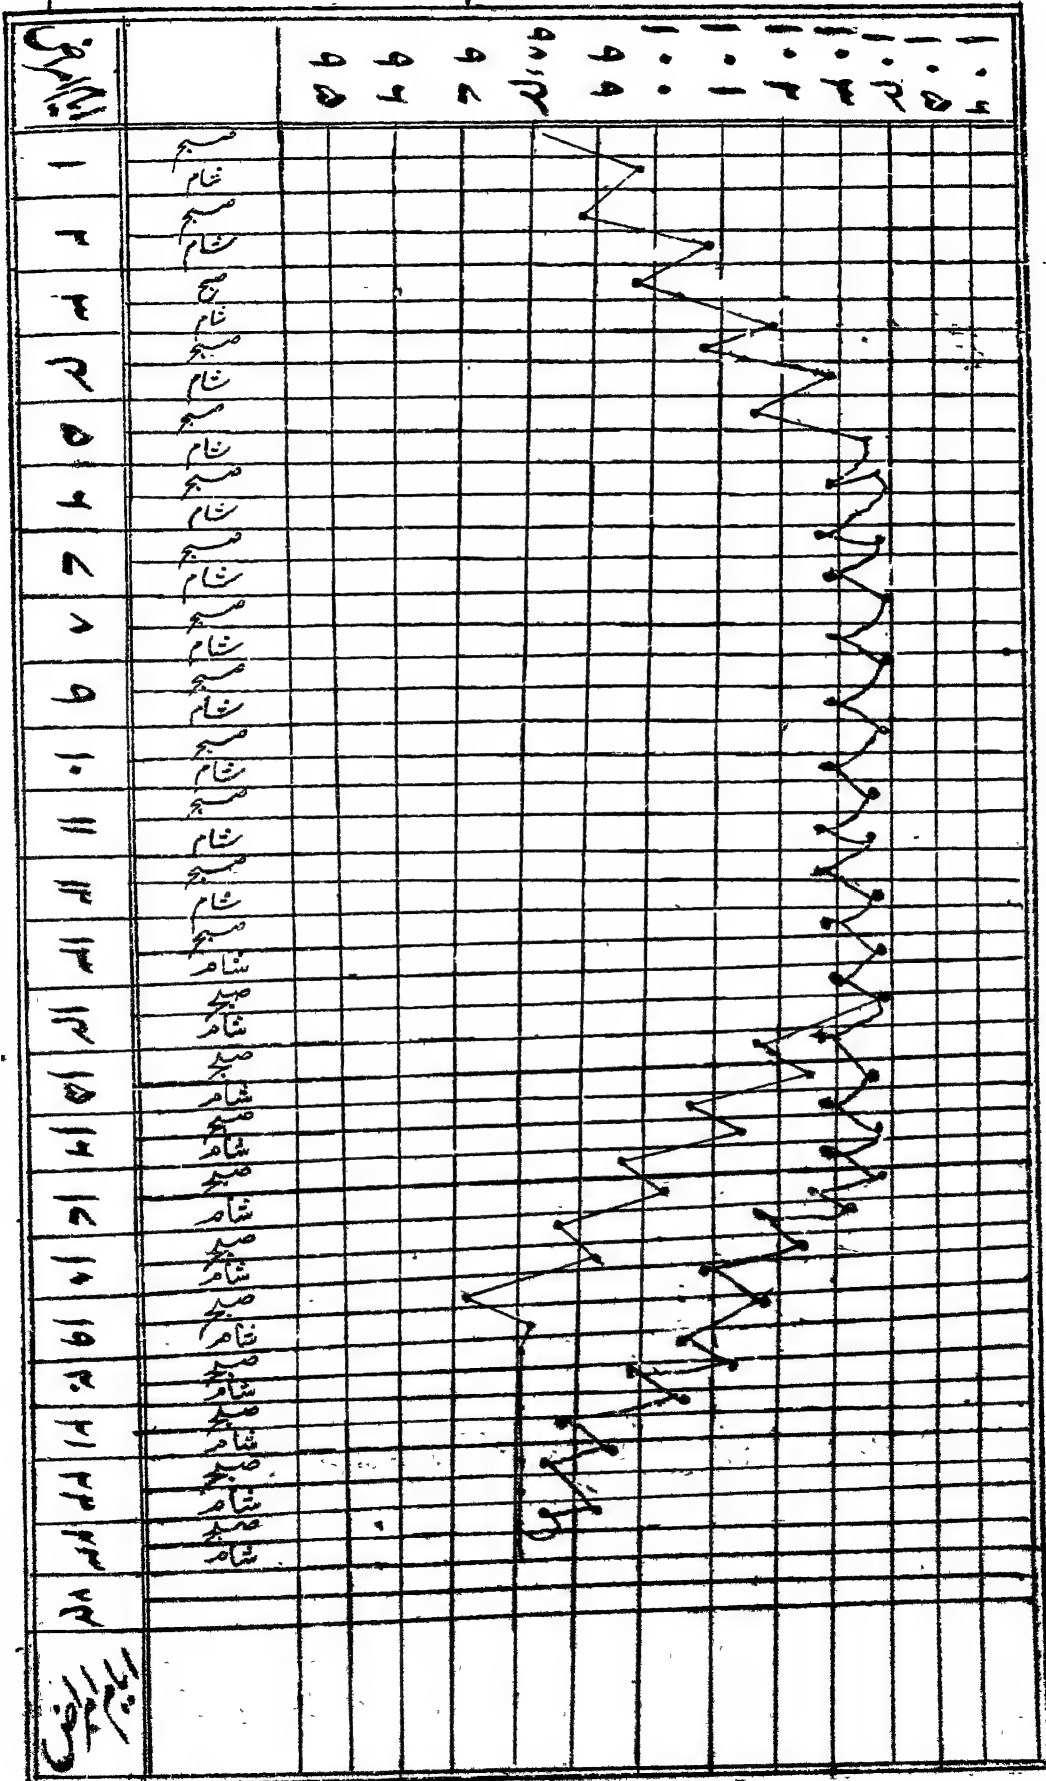 ۹۵ ۹۶ ۹۷ ۹۸.۴ ۹۹ ۱۰۰ ۱۰۱ ۱۰۲ ۱۰۳ ۱۰۴ ۱۰۵ ۱۰۶
۱ صبح
شام
۲ صبح
شام
۳ صبح
شام
۴ صبح
شام
۵ صبح
شام
۶ صبح
شام
۷ صبح
شام
۸ صبح
شام
۹ صبح
شام
۱۰ صبح
شام
۱۱ صبح
شام
۱۲ صبح
شام
۱۳ صبح
شام
۱۴ صبح
شام
۱۵ صبح
شام
۱۶ صبح
شام
۱۷ صبح
شام
۱۸ صبح
شام
۱۹ صبح
شام
۲۰ صبح
شام
۲۱ صبح
شام
۲۲ صبح
شام
۲۳ صبح
شام
۲۴